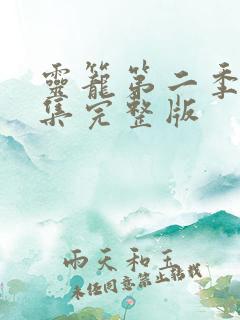 靈籠第二季
集完整版
雨天和玉
未经同意禁止转载